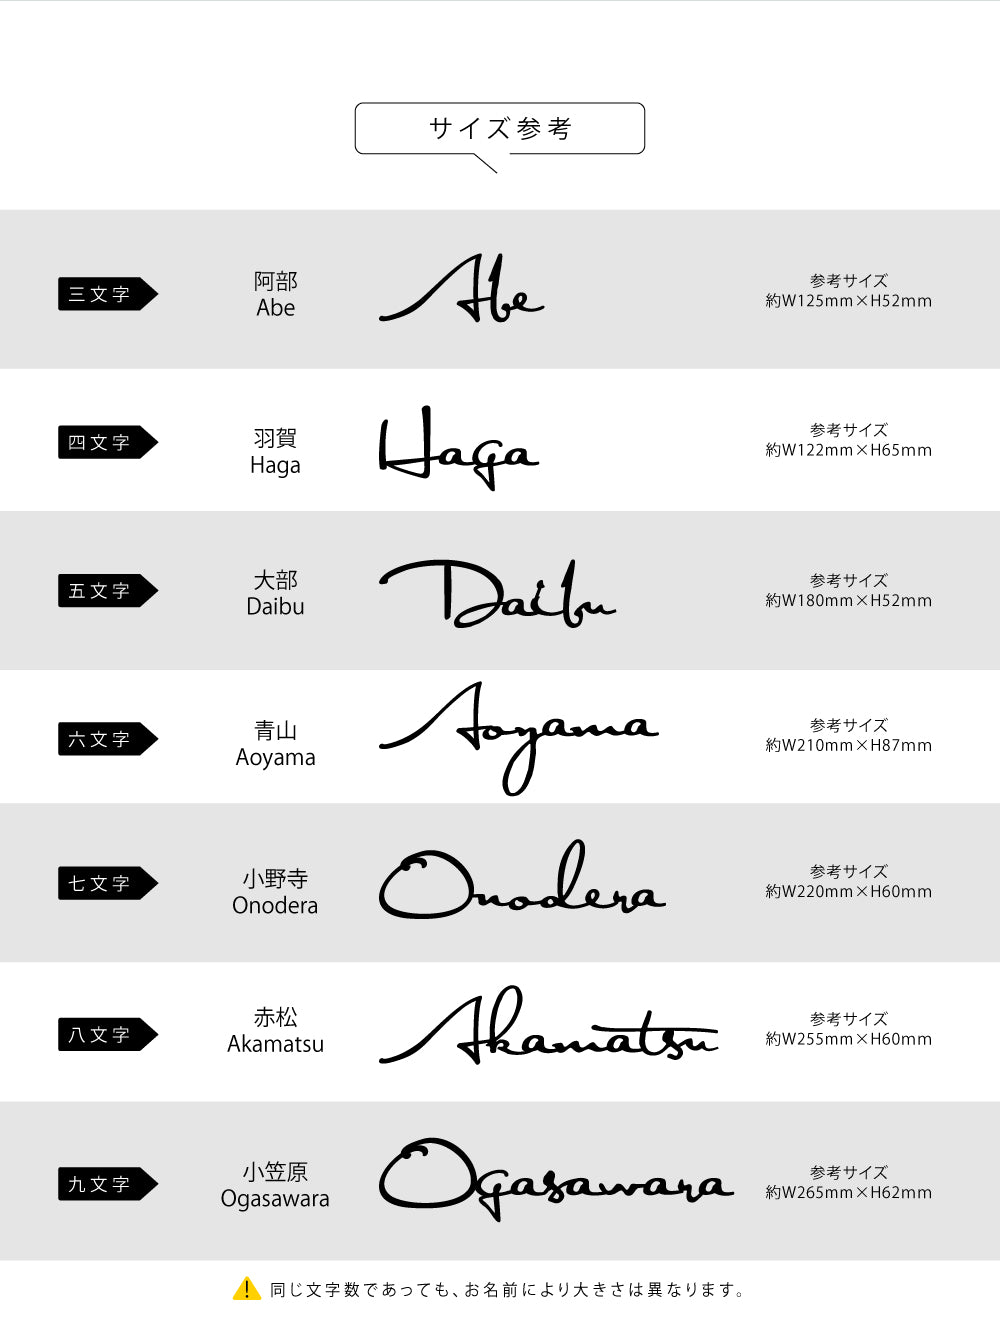 サイズ参考
三文字
阿部
Abe
Abe
参考サイズ
約W125mm×H52mm
四文字
羽賀
Haga
Haga
参考サイズ
約W122mm×H65mm
五文字
大部
Daibu
Daibu
参考サイズ
約W180mm×H52mm
六文字
青山
Aoyama
Aoyama
参考サイズ
約W210mm×H87mm
七文字
小野寺
Onodera
Onodera
参考サイズ
約W220mm×H60mm
八文字
赤松
Akamatsu
Akamatsu
参考サイズ
約W255mm×H60mm
九文字
小笠原
Ogasawara
Ogasawara
参考サイズ
約W265mm×H62mm
同じ文字数であっても、お名前により大きさは異なります。